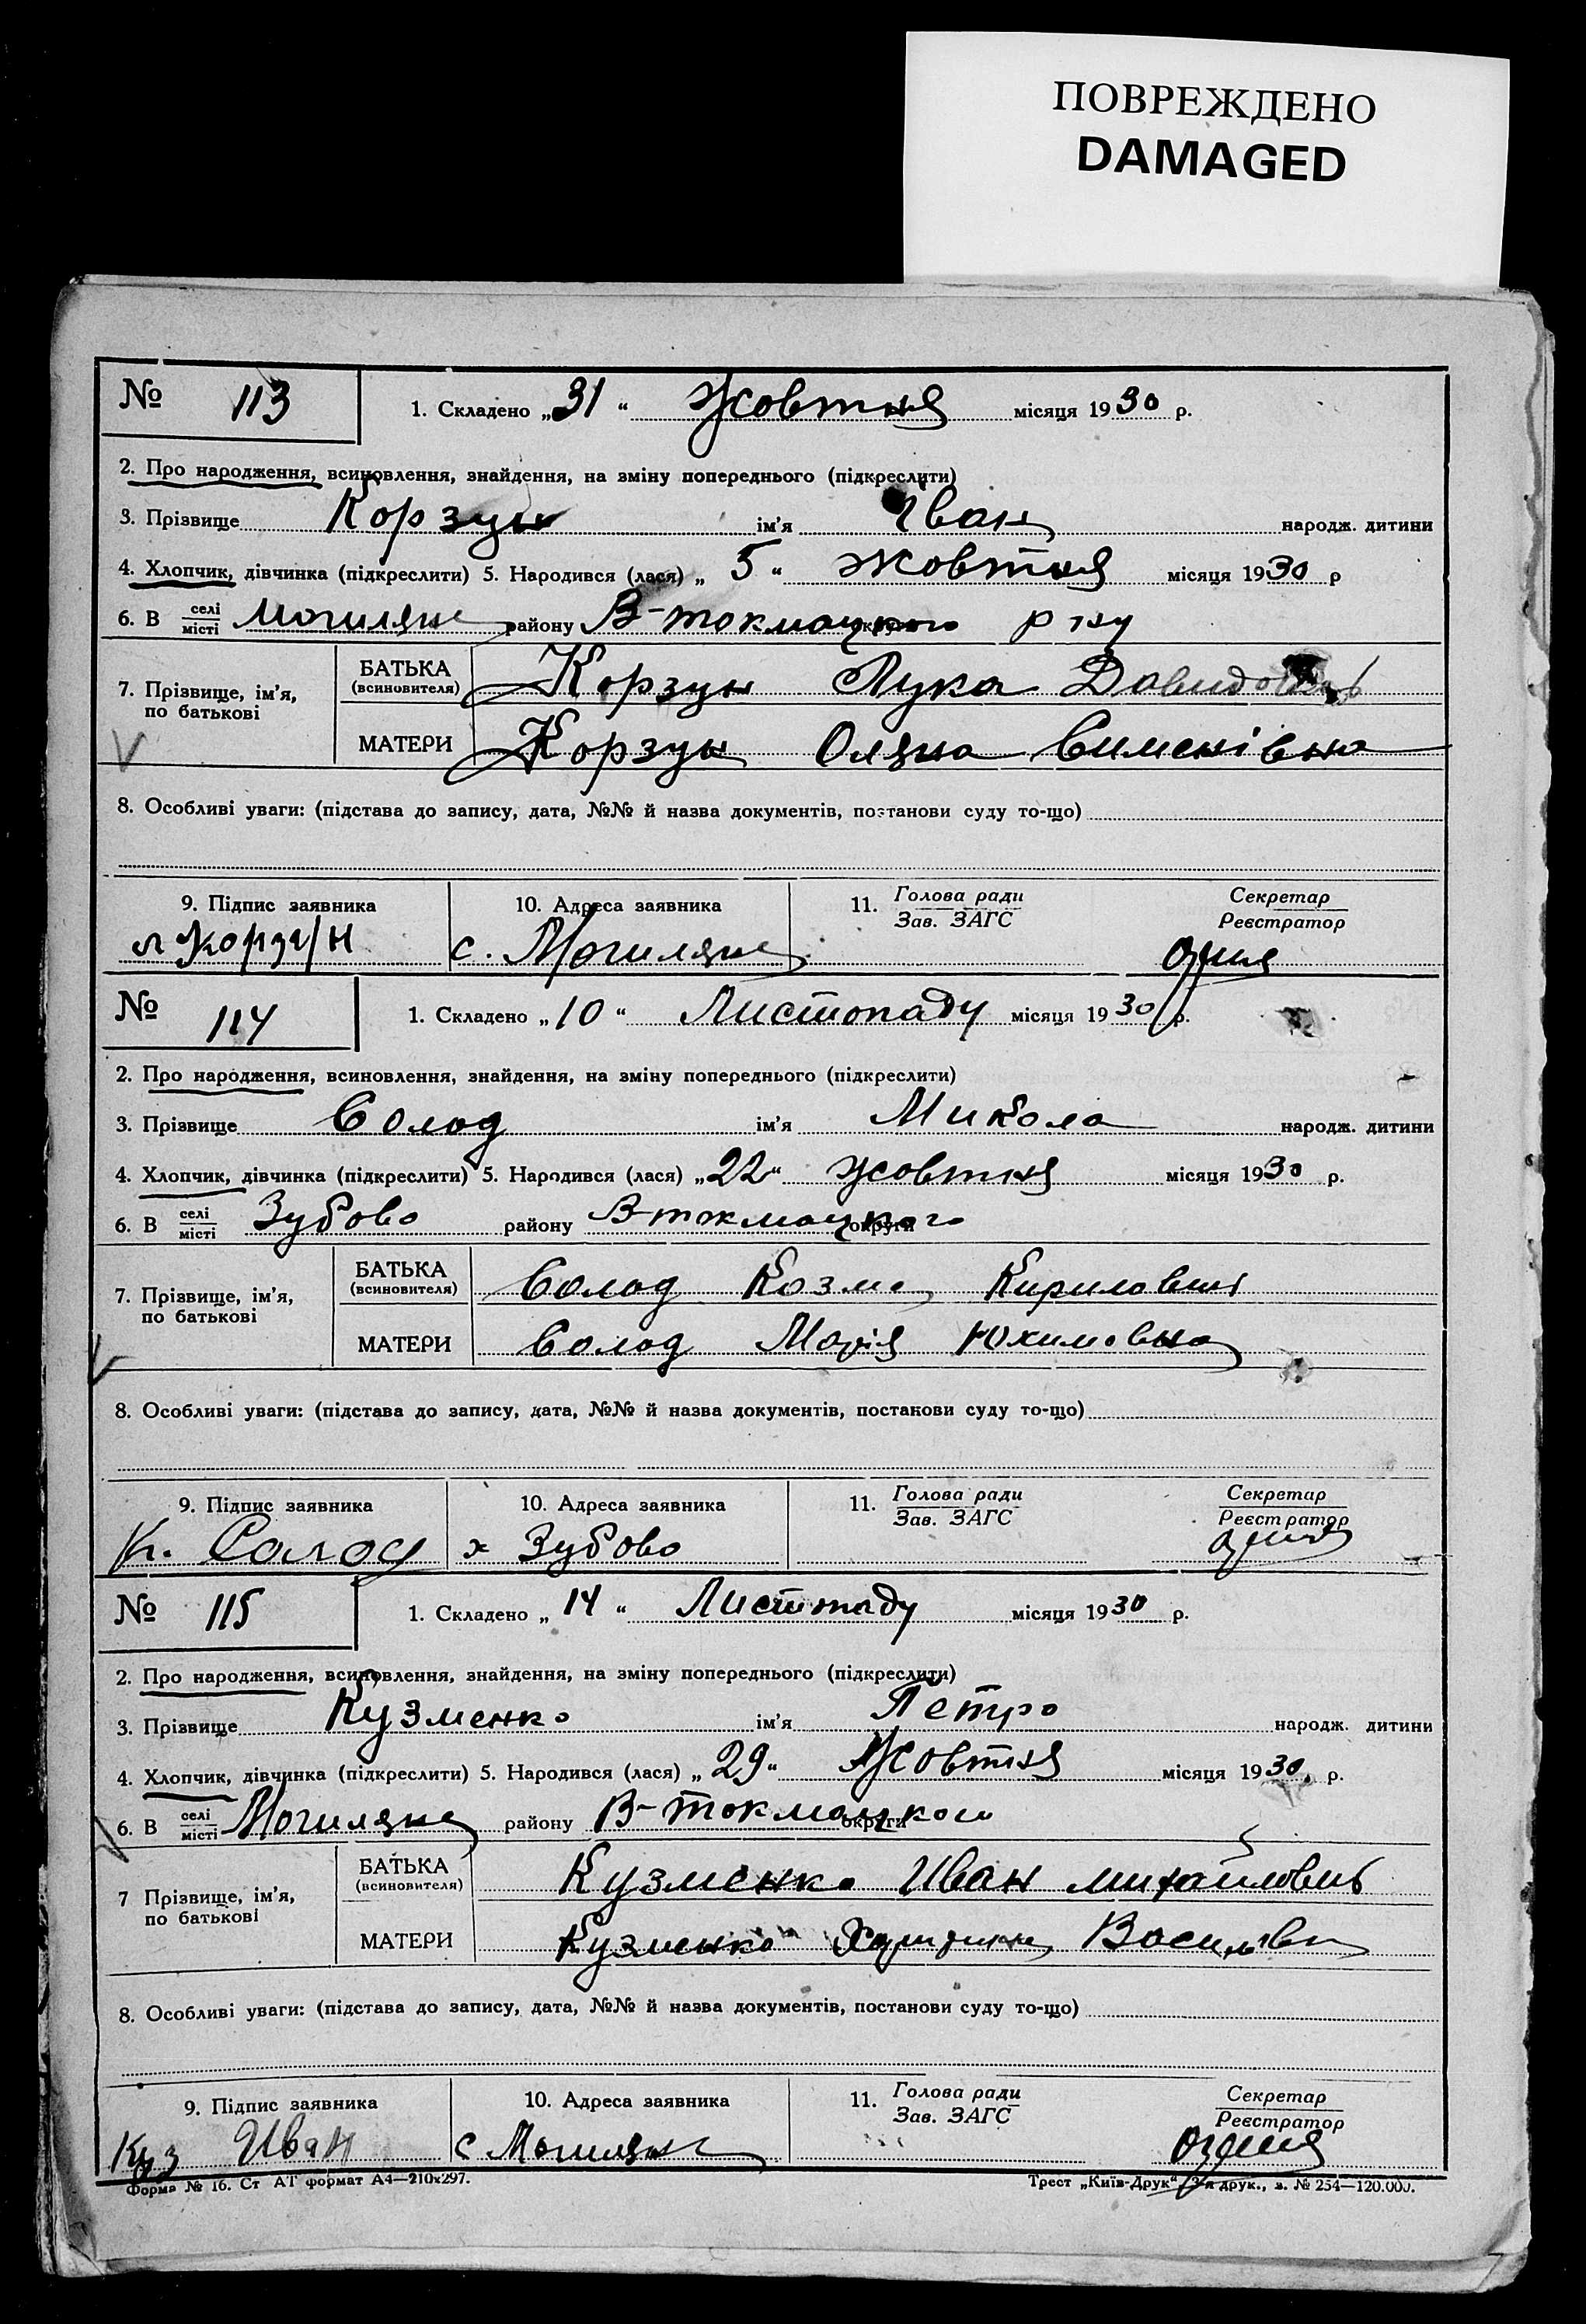 ПОВРЕЖДЕНО
DAMAGED
№ 113
1. Складено „31“ Жовтня місяця 1930 р.
2. Про народження, всиновлення, знайдення, на зміну попереднього (підкреслити)
3. Прізвище Корзун ім'я Іван народж. дитини
4. Хлопчик, дівчинка (підкреслити) 5. Народився (лася) „5“ жовтня місяця 1930 р
6. В селі місті Могиляне району В-токмацького округи р ну
7. Прізвище, ім'я, по батькові
БАТЬКА (всиновителя) Корзун Лука Давидович
МАТЕРИ Корзун Оляна Сименівна
8. Особливі уваги: (підстава до запису, дата, №№ й назва документів, постанови суду то-що)
9. Підпис заявника 10. Адреса заявника 11. Голова ради Зав. ЗАГС Секретар Реєстратор
л Корзун с. Могиляне
№ 114
1. Складено „10“ Листопаду місяця 1930 р.
2. Про народження, всиновлення, знайдення, на зміну попереднього (підкреслити)
3. Прізвище Солод ім'я Микола народж. дитини
4. Хлопчик, дівчинка (підкреслити) 5. Народився (лася) „22“ жовтня місяця 1930 р.
6. В селі місті Зубово району В-токмацького округи
7. Прізвище, ім'я, по батькові
БАТЬКА (всиновителя) Солод Козма Кирилович
МАТЕРИ Солод Марія Юхимовна
8. Особливі уваги: (підстава до запису, дата, №№ й назва документів, постанови суду то-що)
9. Підпис заявника 10. Адреса заявника 11. Голова ради Зав. ЗАГС Секретар Реєстратор
К. Солод х Зубово
№ 115
1. Складено „14“ Листопаду місяця 1930 р.
2. Про народження, всиновлення, знайдення, на зміну попереднього (підкреслити)
3. Прізвище Кузменко ім'я Петро народж. дитини
4. Хлопчик, дівчинка (підкреслити) 5. Народився (лася) „29“ Жовтня місяця 1930 р.
6. В селі місті Могиляне району В-токмацького округи
7 Прізвище, ім'я, по батькові
БАТЬКА (всиновителя) Кузменко Иван михайлович
МАТЕРИ Кузменко Василівн
8. Особливі уваги: (підстава до запису, дата, №№ й назва документів, постанови суду то-що)
9. Підпис заявника 10. Адреса заявника 11. Голова ради Зав. ЗАГС Секретар Реєстратор
Куз Иван с Могиляне
Форма № 16. Ст АТ формат А4—210х297. Трест „Київ-Друк“ друк., з. № 254—120.000.